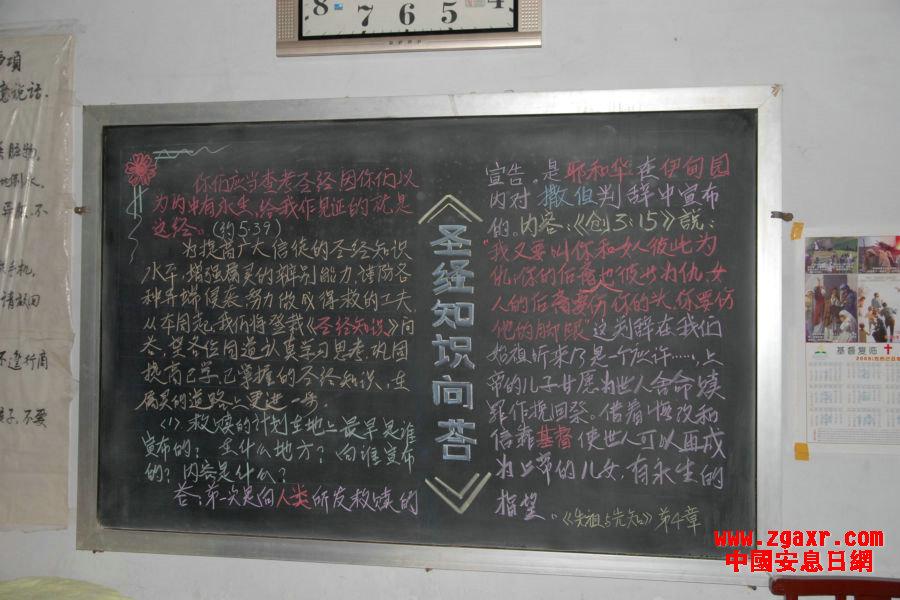 8 7 6 5 4
事項
意说话.
脏物,
不
手机,
请放回
不遵行周
不要
你们应当查考圣经因你们以
为内中有永生,给我作见证的就是
这经。(约5:39)
为提高广大信徒的圣经知识
水平,增强属灵的辨别能力,谨防各
种异端侵袭,努力做成得救的工夫
从本周起,我们将登载《圣经知识》问
答,望各位同道认真学习思考,巩固
提高已学、已掌握的圣经知识,在
属灵的道路上更进一步。
(1)救赎的计划在地上最早是谁
宣布的?在什么地方?向谁宣布
的?内容是什么?
答:第一次是向人类所发救赎的
圣经知识问答
宣告。是耶和华在伊甸园
内对撒但判辞中宣布
的。内容:《创3:15》説:
“我又要叫你和女人彼此为
仇,你的后裔也彼此为仇,女
人的后裔要伤你的头,你要伤
他的脚跟”这判辞在我们
始祖听来乃是一个应许……,上
帝的儿子甘愿为世人舍命,赎
罪作挽回祭。借着悔改和
信靠基督使世人可以再成
为上帝的儿女,有永生的
指望。《先祖与先知》第4章
基督复临
www.zgaxr.com
中國安息日網